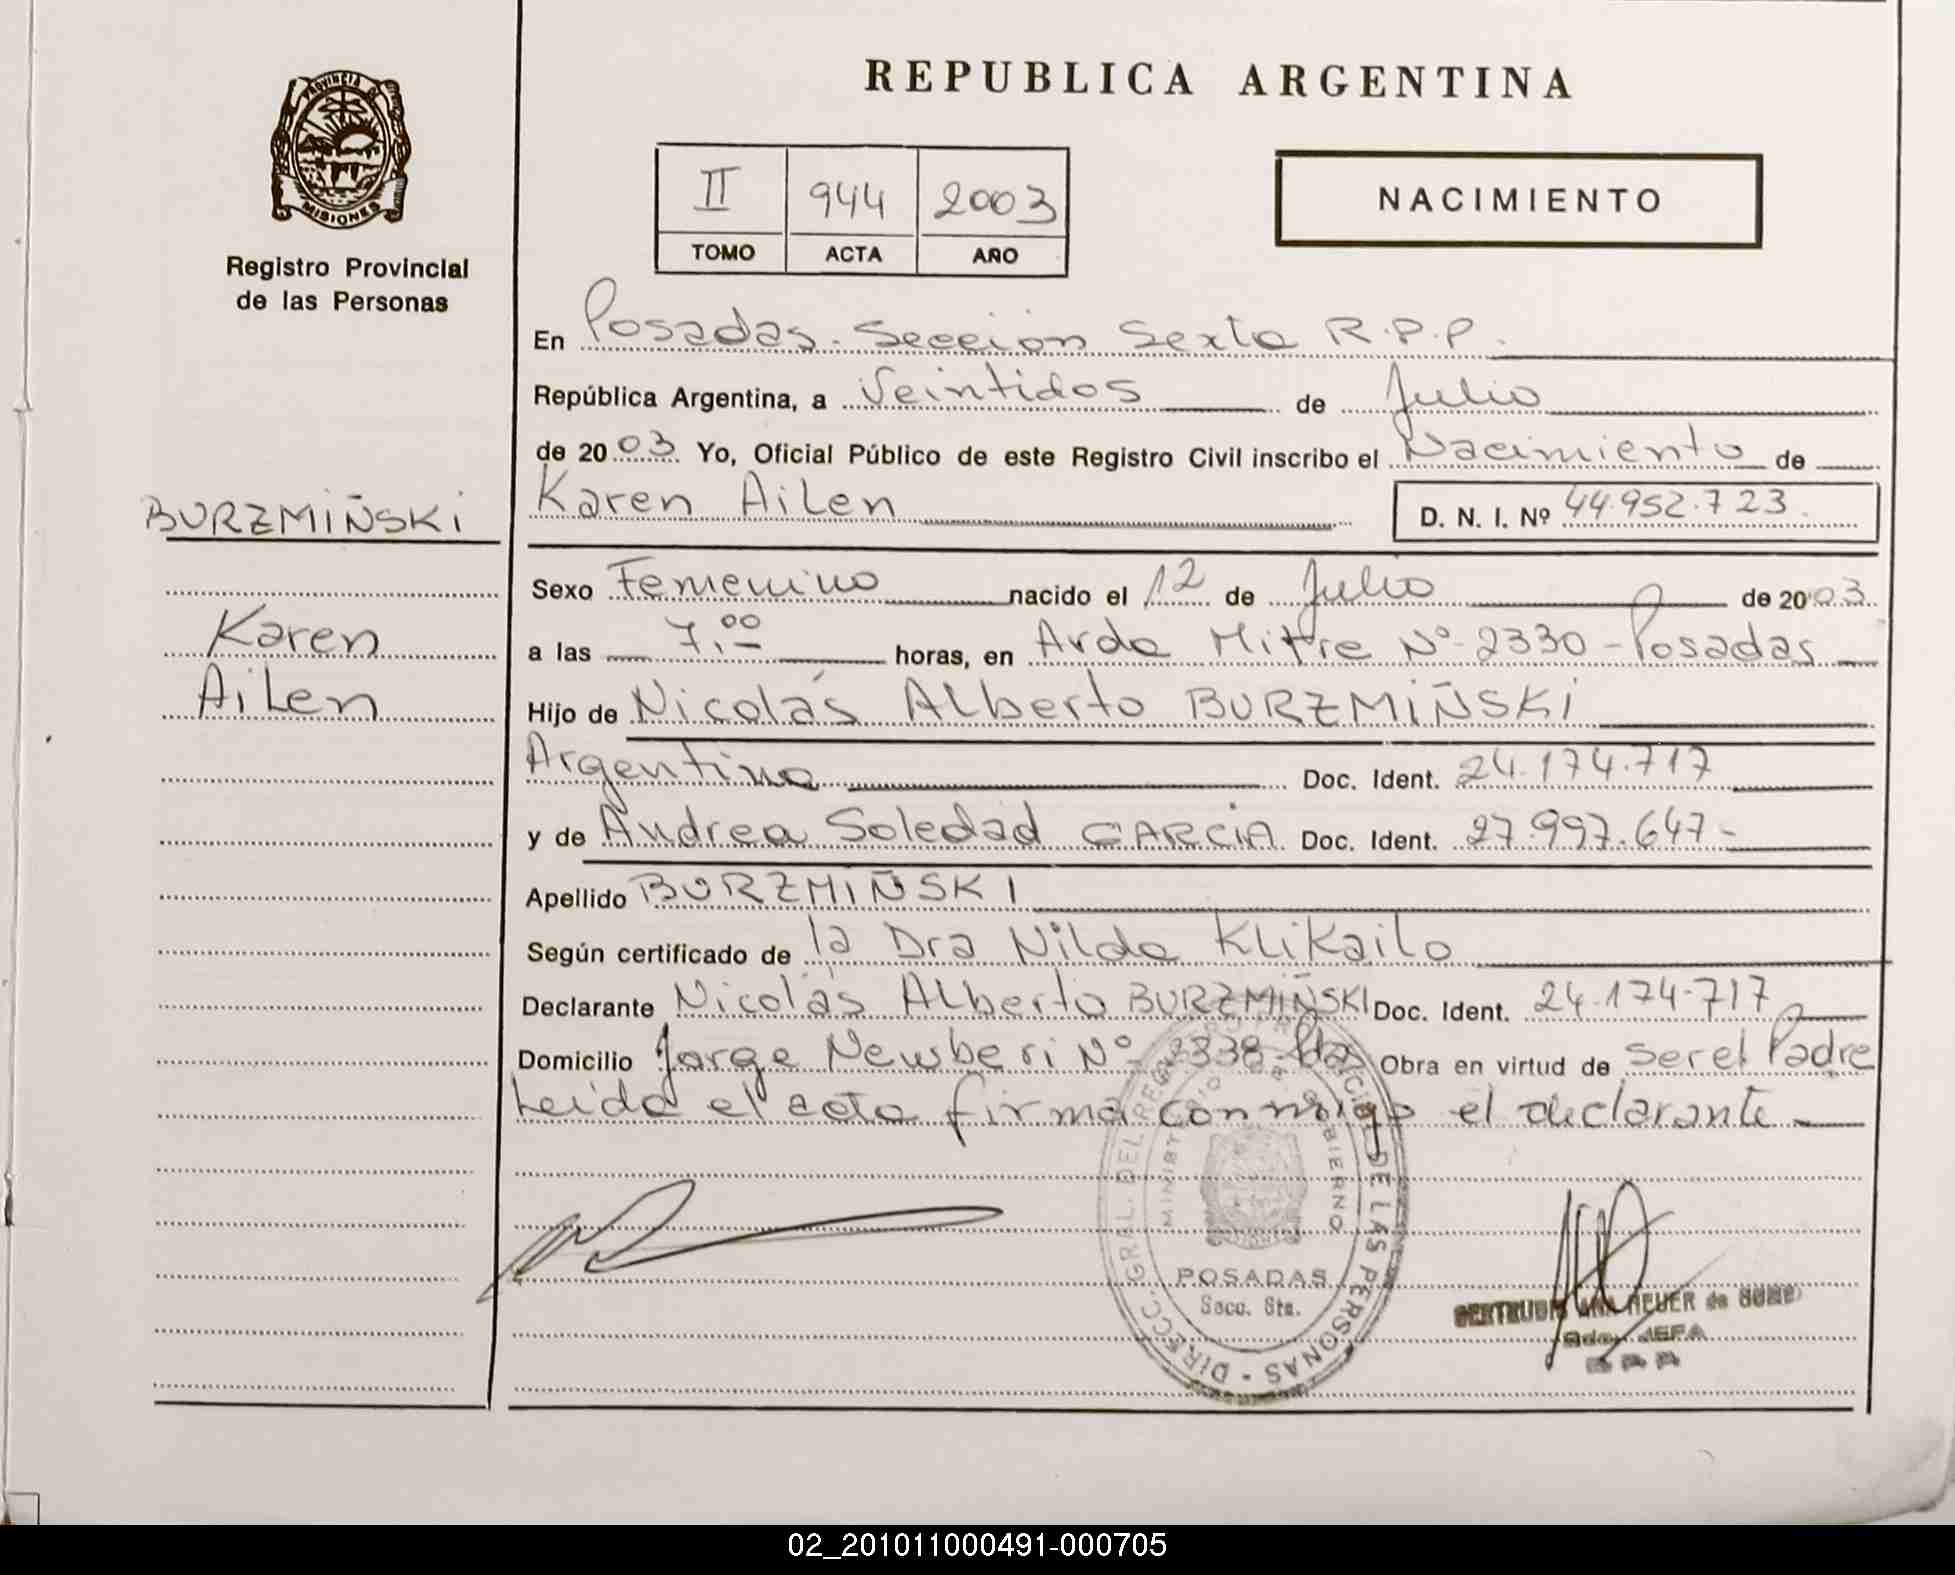 PROVINCIA DE
MISIONES
Registro Provincial
de las Personas
BURZMIÑSKI
Karen
Ailen
REPUBLICA ARGENTINA
II 944 2003
TOMO ACTA AÑO
NACIMIENTO
En Posadas - Sección Sexta R.P.P.
República Argentina, a Veintidos de Julio
de 2003 Yo, Oficial Público de este Registro Civil inscribo el Nacimiento de
Karen Ailen D. N. I. Nº 44.952.723.
Sexo Femenino nacido el 12 de Julio de 2003
a las 7,00 horas, en Avda Mitre Nº 2330 - Posadas
Hijo de Nicolás Alberto BURZMIÑSKI
Argentino Doc. Ident. 24.174.717
y de Andrea Soledad GARCIA Doc. Ident. 27.997.647-
Apellido BURZMIÑSKI
Según certificado de la Dra Nilda Klikailo
Declarante Nicolás Alberto BURZMIÑSKI Doc. Ident. 24.174.717
Domicilio Jorge Newberi Nº 3338-Pdas Obra en virtud de ser el Padre
Leida el acta firma conmigo el declarante
DIRECC. GRAL. DEL REGISTRO PROVINCIAL DE LAS PERSONAS -
MINISTERIO DE GOBIERNO
POSADAS
Secc. 6ta.
ANA HEUER de
JEFA
02_201011000491-000705